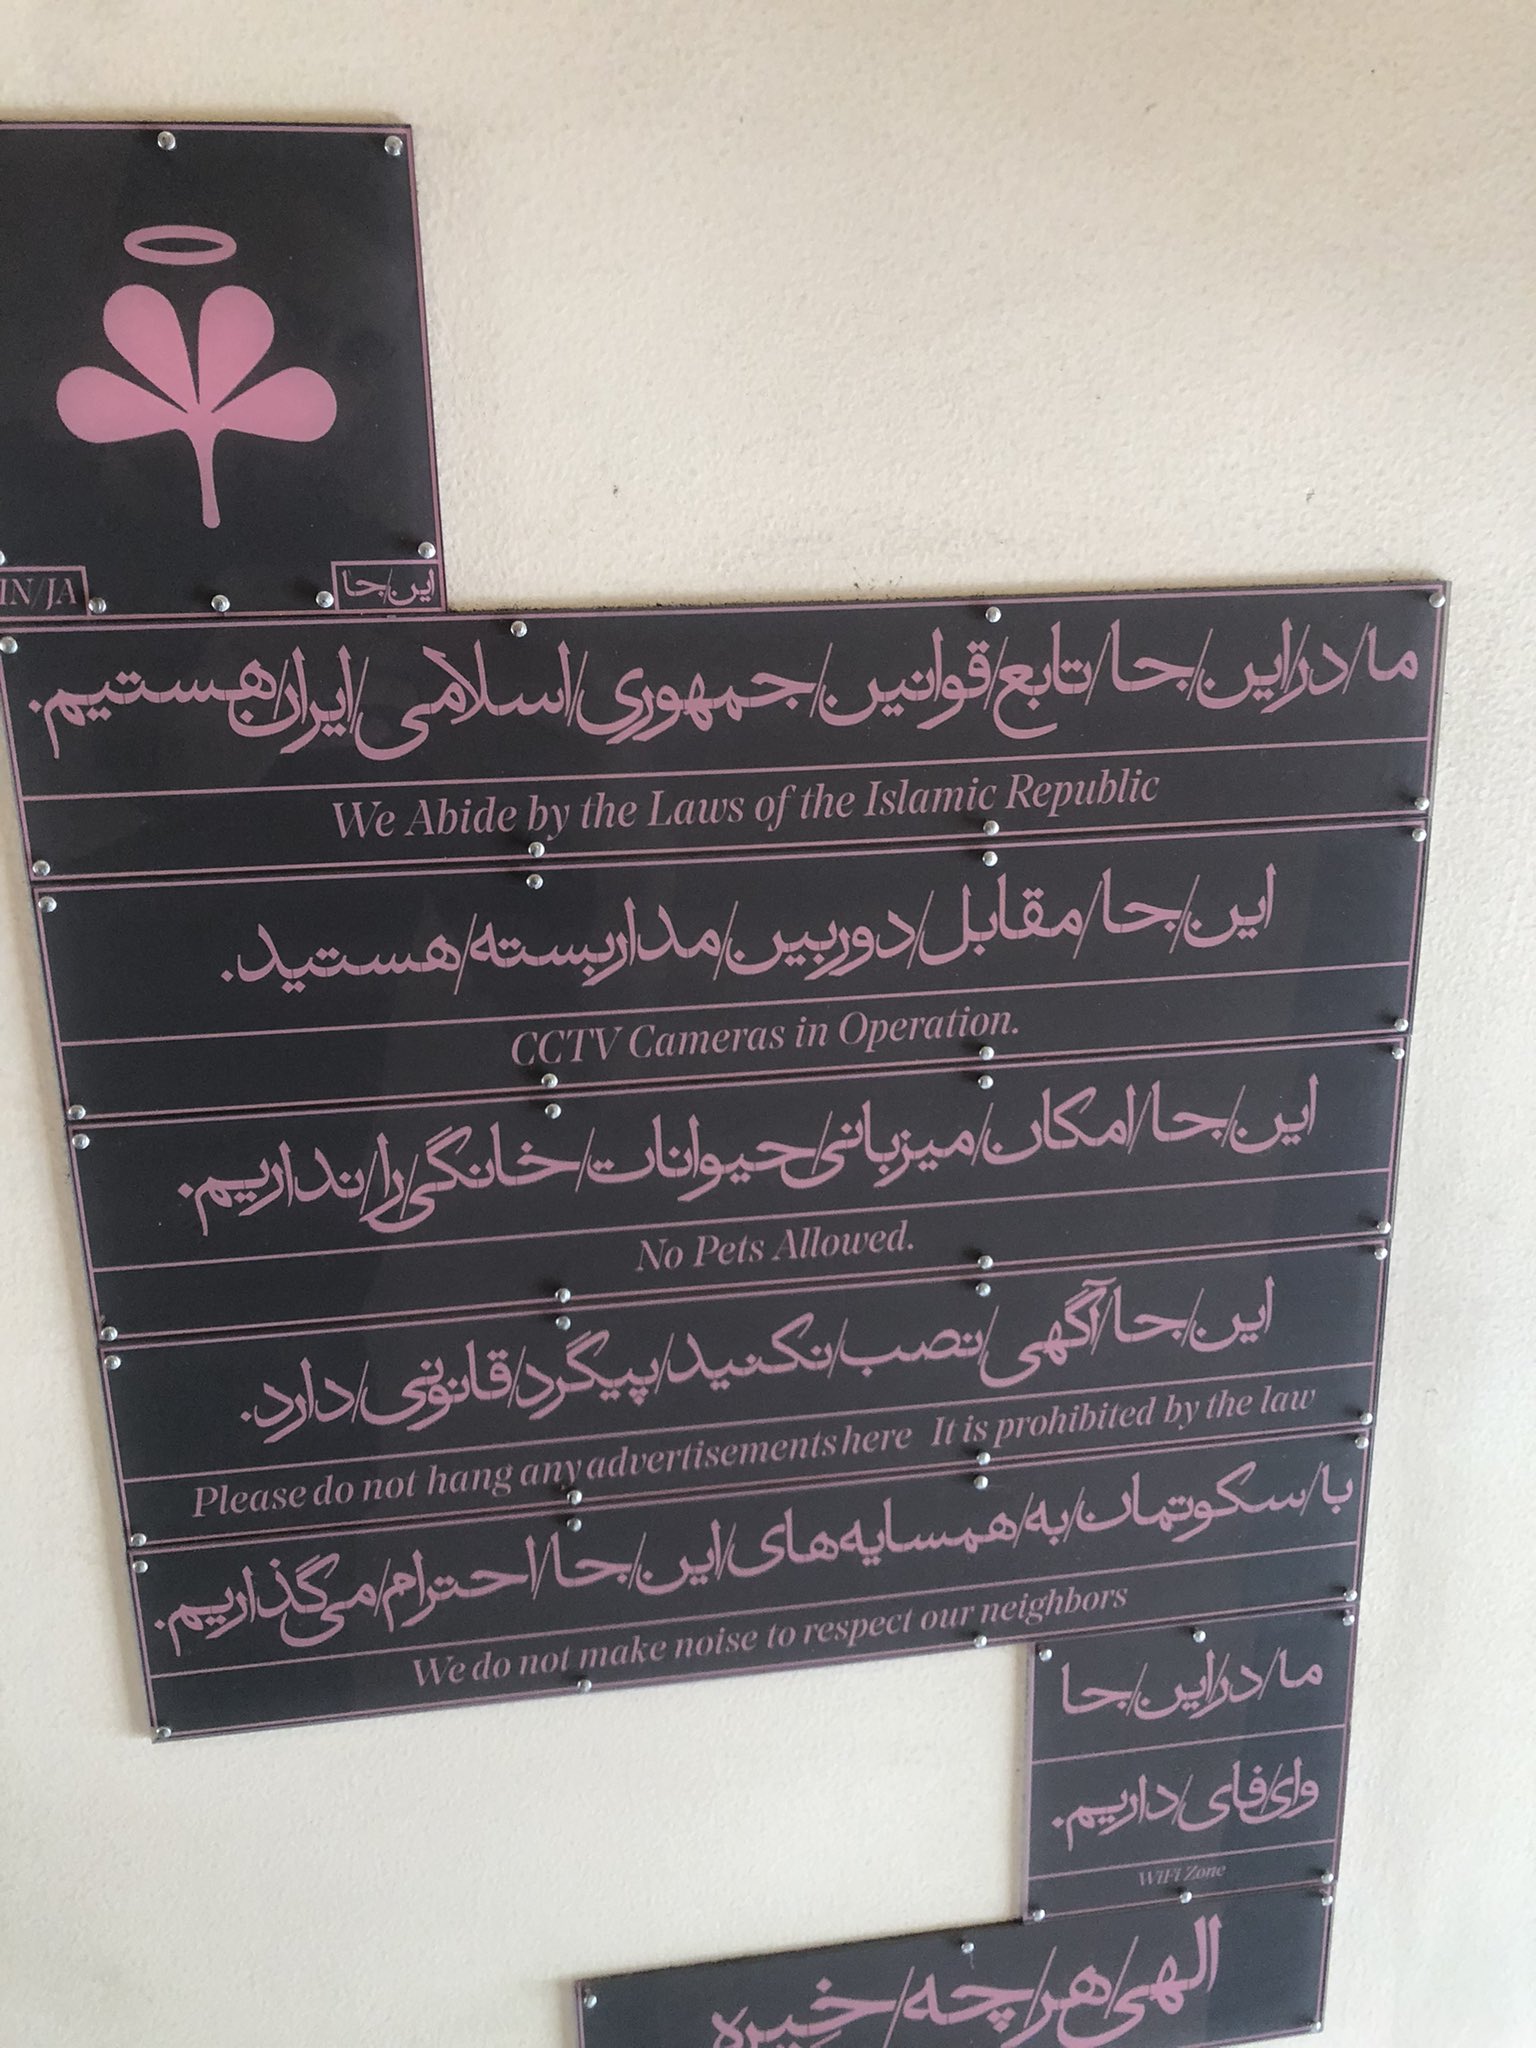 IN/JA
این/جا
ما/در/این/جا/تابع/قوانین/جمهوری/اسلامی/ایران/هستیم.
We Abide by the Laws of the Islamic Republic
این/جا/مقابل/دوربین/مداربسته/هستید.
CCTV Cameras in Operation.
این/جا/امکان/میزبانی/حیوانات/خانگی/را/نداریم.
No Pets Allowed.
این/جا/آگهی/نصب/نکنید/پیگرد/قانونی/دارد.
Please do not hang any advertisements here It is prohibited by the law
با/سکوتمان/به/همسایه‌های/این/جا/احترام/می‌گذاریم.
We do not make noise to respect our neighbors
ما/در/این/جا
وای/فای/داریم.
WiFi Zone
الهی/هر/چه/خیره